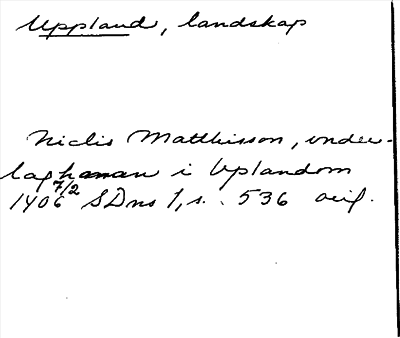 Uppland, landskap
Niclis Matthisson, under-
laghman i Uplandom
1406 7/2 SDns 1, s. 536 orig.